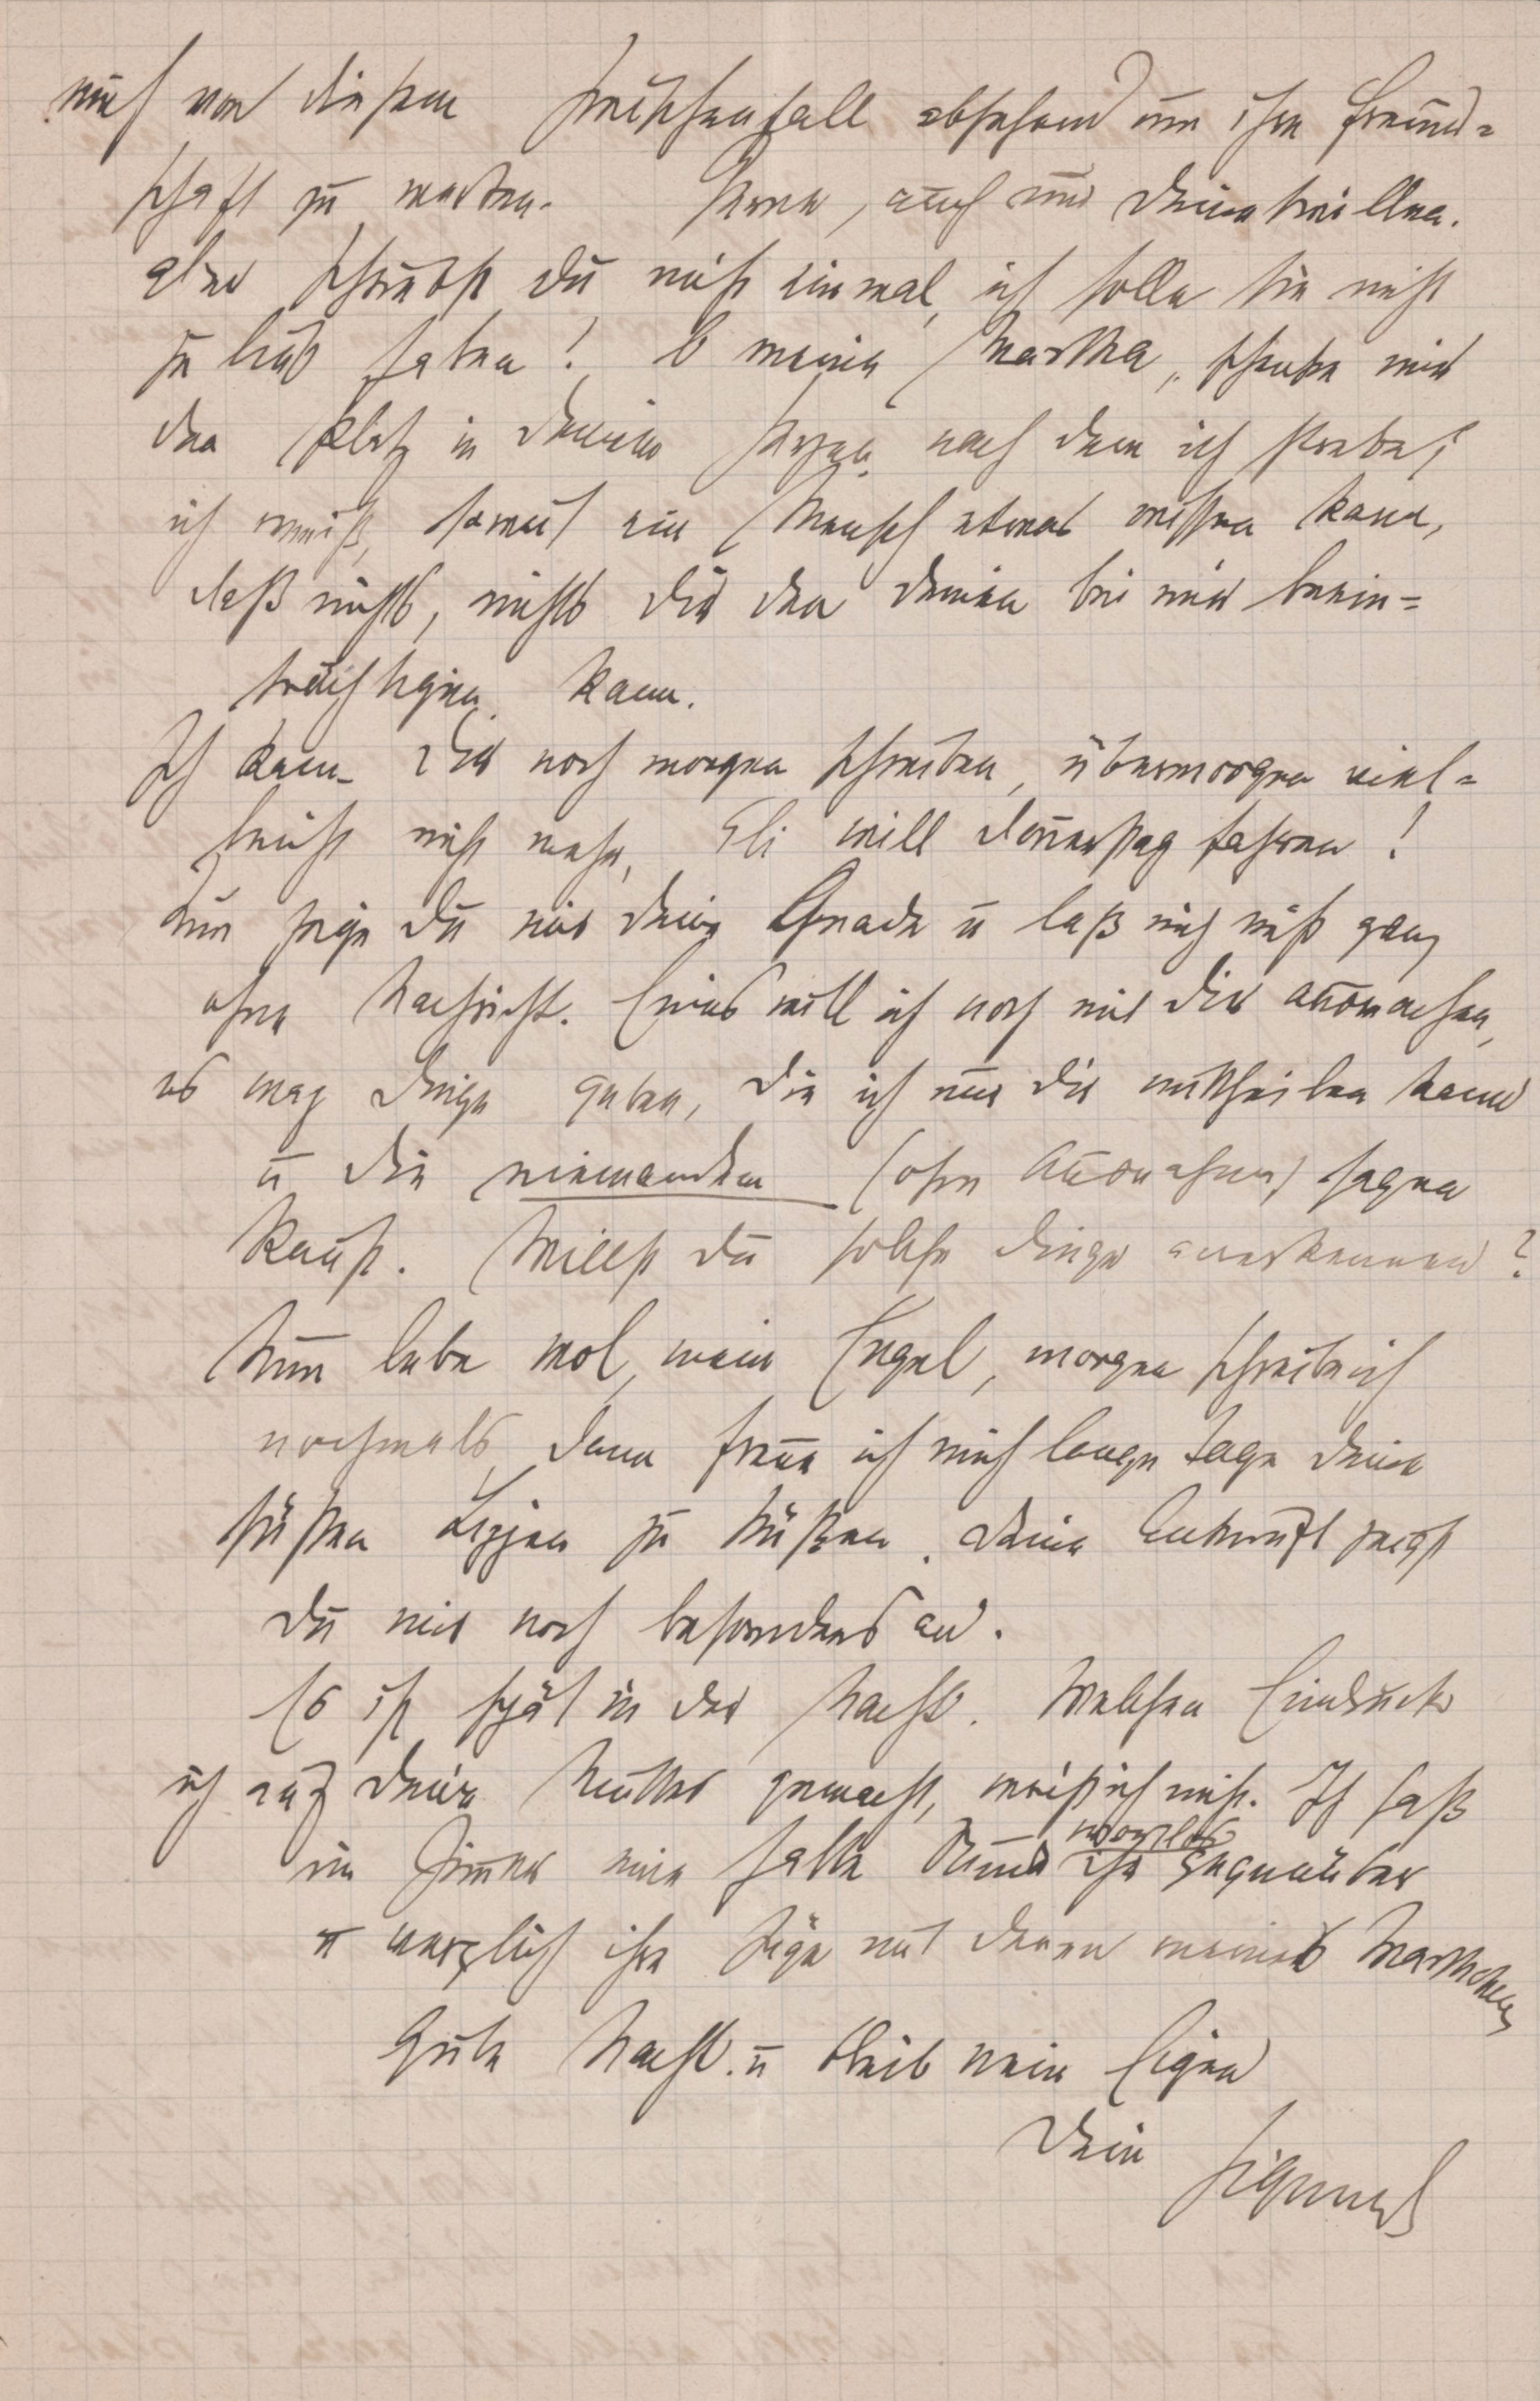 mich von diesem  absehend um ihre Freund-
schaft zu werben. Ferner, auch um Deinetwillen.
aber schreibst Du nicht einmal, ich solle sie nicht
zu lieb haben! O meine Martha, schenke mir
den Platz in Deinem Herzen, nach dem ich strebe;
ich weiß, soweit ein Mensch etwas wissen kann,
daß nichts, nichts Dir den Deinen bei mir beein-
trächtigen kann.
Ich kann Dir noch morgen schreiben, übermorgen viel-
leicht nicht mehr, Eli will Donnerstag fahren!
Nun zeige Du mir Deine Gnade u laß mich nicht ganz
ohne Nachricht. Eines will ich noch mit Dir ausmachen,
es mag Dinge geben, die ich nur Dir mittheilen kann
u die niemandem (ohne Ausnahme) sagen
kannst. Willst Du solche Dinge anerkennen?
Nun lebe wol, mein Engel, morgen schreib ich
nochmals, dann freue ich mich lange Tage Deine
süßen Lippen zu küßen. Deine Ankunft zeigst
Du mir noch besonders an.
Es ist spät in der Nacht. Welchen Eindruck
ich auf Deine Mutter gemacht, weiß ich nicht. Ich saß
im Zimmer eine halbe Stunde ihr wortlos gegenüber
u verglich ihre Züge mit denen meines Marthchens
Gute Nacht. u bleib mein Eigen
Dein Sigmund